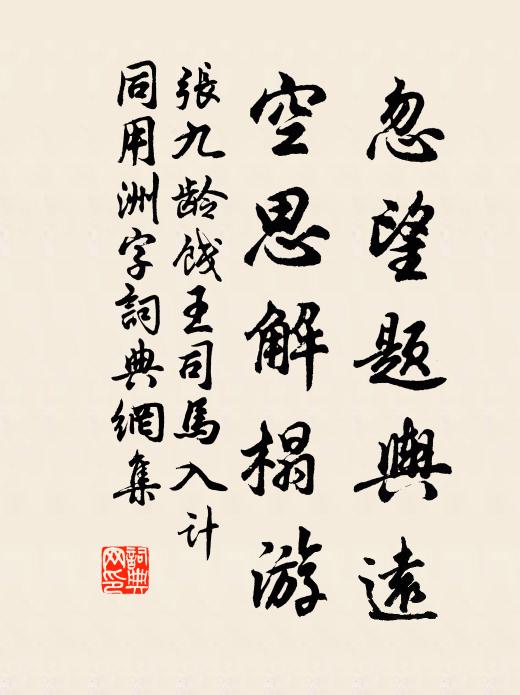 忽望題輿遠
空思解榻游
張九龄餞王司馬入计
同用洲字詞典網集
詞典网印